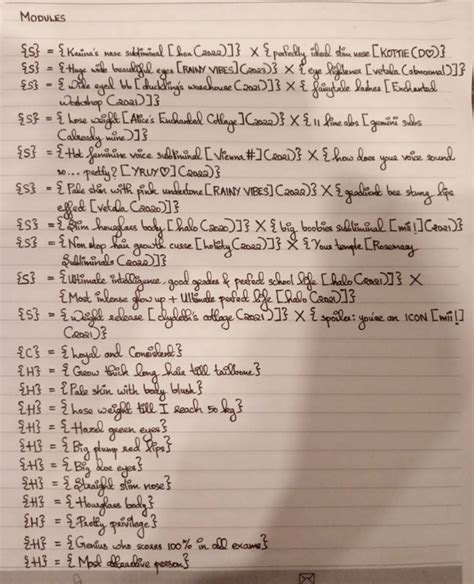 MODULES
{S} = {Karina's nose subliminal [hoa (2022)]} × {perfectly ideal slim nose [KOTTIE (D♡)]}
{S} = {Huge wide beautiful eyes [RAINY VIBES] (2023)} × {eye lightener [vetala (abnormal)]}
{S} = {Wide eyed bb [duckling's warehouse (2021)]} × {fairytale lashes [Enchanted
Workshop (2021)]}
{S} = {Lose weight [Alice's Enchanted Cottage] (2022)} × {11 line abs [gemini subs
(already mine)]}
{S} = {Hot feminine voice subliminal [Vienna #] (2021)} × {how does your voice sound
so... pretty? [YRUY♡] (2022)}
{S} = {Pale skin with pink undertone [RAINY VIBES] (2022)} × {gradient bee stung lips
effect [vetala (2020)]}
{S} = {Slim hourglass body [halo (2020)]} × {big boobies subliminal [mii!] (2021)}
{S} = {Non stop hair growth curse [(2022)]} × {Your temple [Rosemary
Subliminals (2022)]}
{S} = {Ultimate intelligence, good grades & perfect school life [halo (2021)]} ×
{Most intense glow up + Ultimate perfect life [halo (2021)]}
{S} = {Weight release [dyleth's cottage (2021)]} × {spoiler: you're an ICON [mii!]
(2021)}
{C} = {Loyal and Consistent}
{H} = {Grow thick long hair till tailbone}
{H} = {Pale skin with body blush}
{H} = {Lose weight till I reach 50 kg}
{H} = {Hazel green eyes}
{H} = {Big plump red lips}
{H} = {Big doe eyes}
{H} = {Straight slim nose}
{H} = {Hourglass body}
{H} = {Pretty privilege}
{H} = {Genius who scores 100% in all exams}
{H} = {Most attractive person}